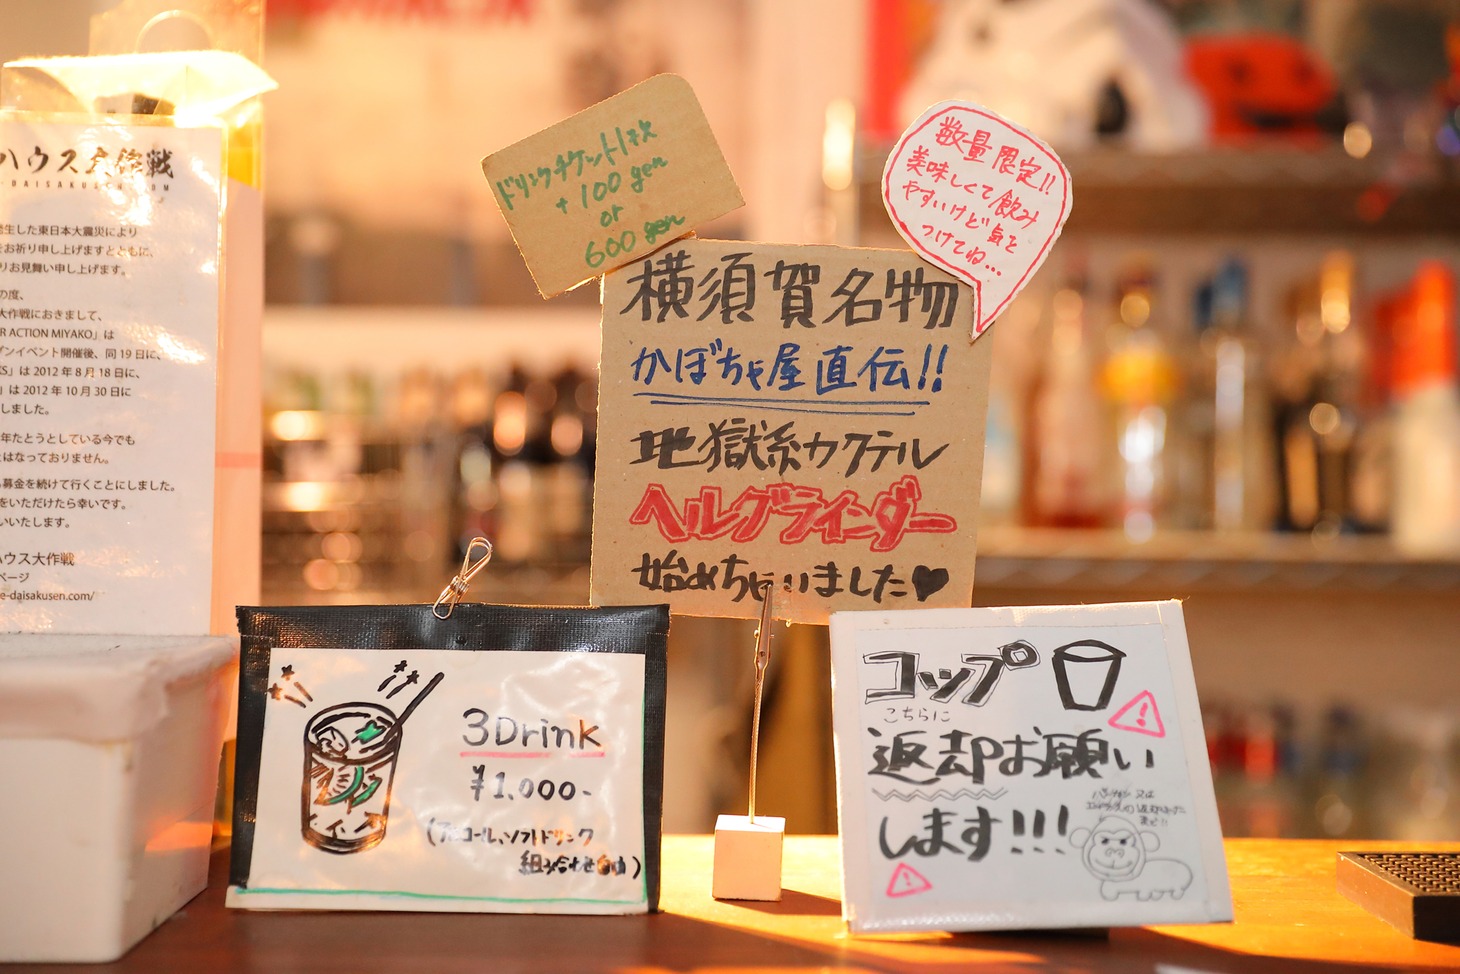 ハウス大作戦
-DAISAKUSEN.COM
発生した東日本大震災により
お祈り申し上げますとともに、
りお見舞い申し上げます。
の度、
大作戦におきまして、
R ACTION MIYAKO」は
プンイベント開催後、同19日に、
KS」は2012年8月18日に、
」は2012年10月30日に
しました。
年たとうとしている今でも
とはなっておりません。
募金を続けて行くことにしました。
をいただけたら幸いです。
いいたします。
ハウス大作戦
ページ
e-daisakusen.com/
ドリンクチケット1枚
+100 gen
or
600 gen
数量限定!!
美味しくて飲み
やすいけど気を
つけてね...
横須賀名物
かぼちゃ屋直伝!!
地獄系カクテル
ヘルグラインダー
始めちゃいました♥
3Drink
¥1,000-
(アルコール、ソフトドリンク
組み合わせ自由)
コップ
こちらに
返却お願い
します!!!